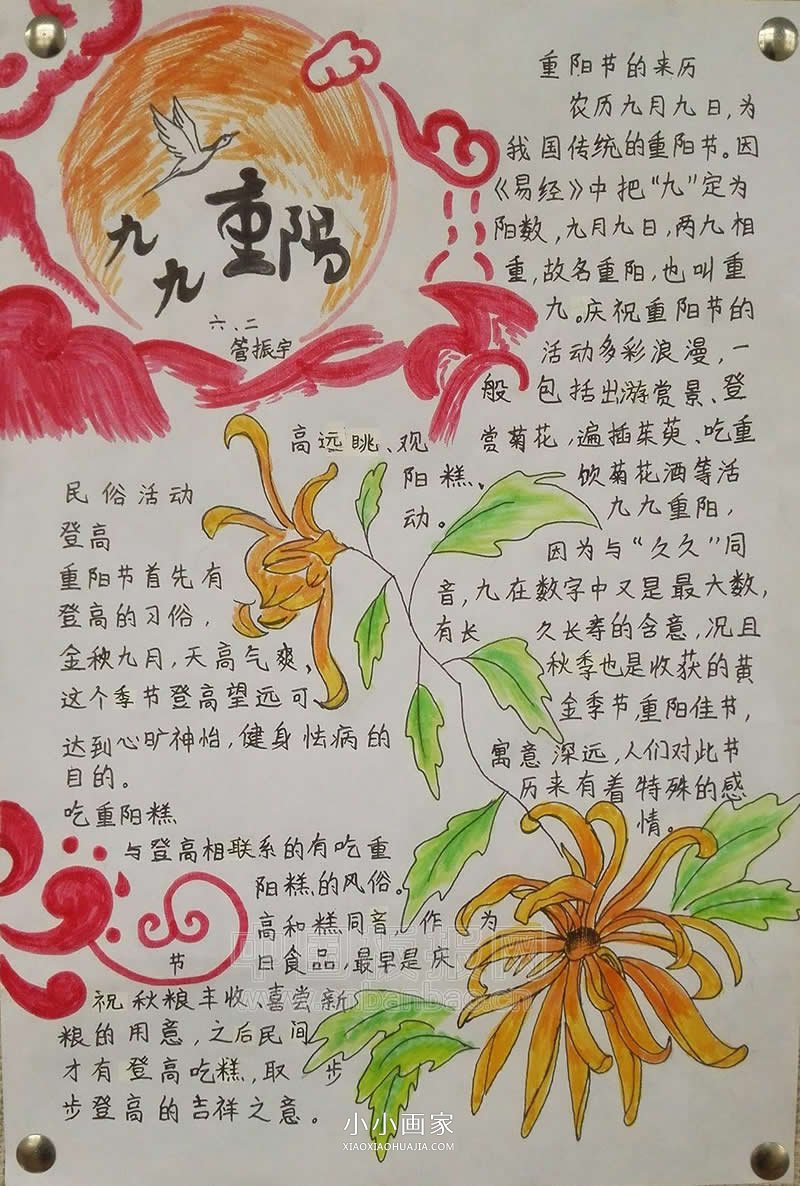 九九重阳
六、二
管振宇
重阳节的来历
农历九月九日,为
我国传统的重阳节。因
《易经》中把“九”定为
阳数,九月九日,两九相
重,故名重阳,也叫重
九。庆祝重阳节的
活动多彩浪漫,一
般 包括出游赏景、登
高远眺、观 赏菊花,遍插茱萸、吃重
阳糕、 饮菊花酒等活
动。 九九重阳,
因为与“久久”同
音,九在数字中又是最大数,
有长 久长寿的含意,况且
秋季也是收获的黄
金季节,重阳佳节,
寓意深远,人们对此节
历来有着特殊的感
情。
民俗活动
登高
重阳节首先有
登高的习俗,
金秧九月,天高气爽,
这个季节登高望远可
达到心旷神怡,健身怯病的
目的。
吃重阳糕
与登高相联系的有吃重
阳糕的风俗。
高和糕同音,作 为
节 日食品,最早是庆
祝秋粮丰收、喜尝新
粮的用意,之后民间
才有登高吃糕,取 步
步登高的吉祥之意。
小小画家
XIAOXIAOHUAJIA.COM